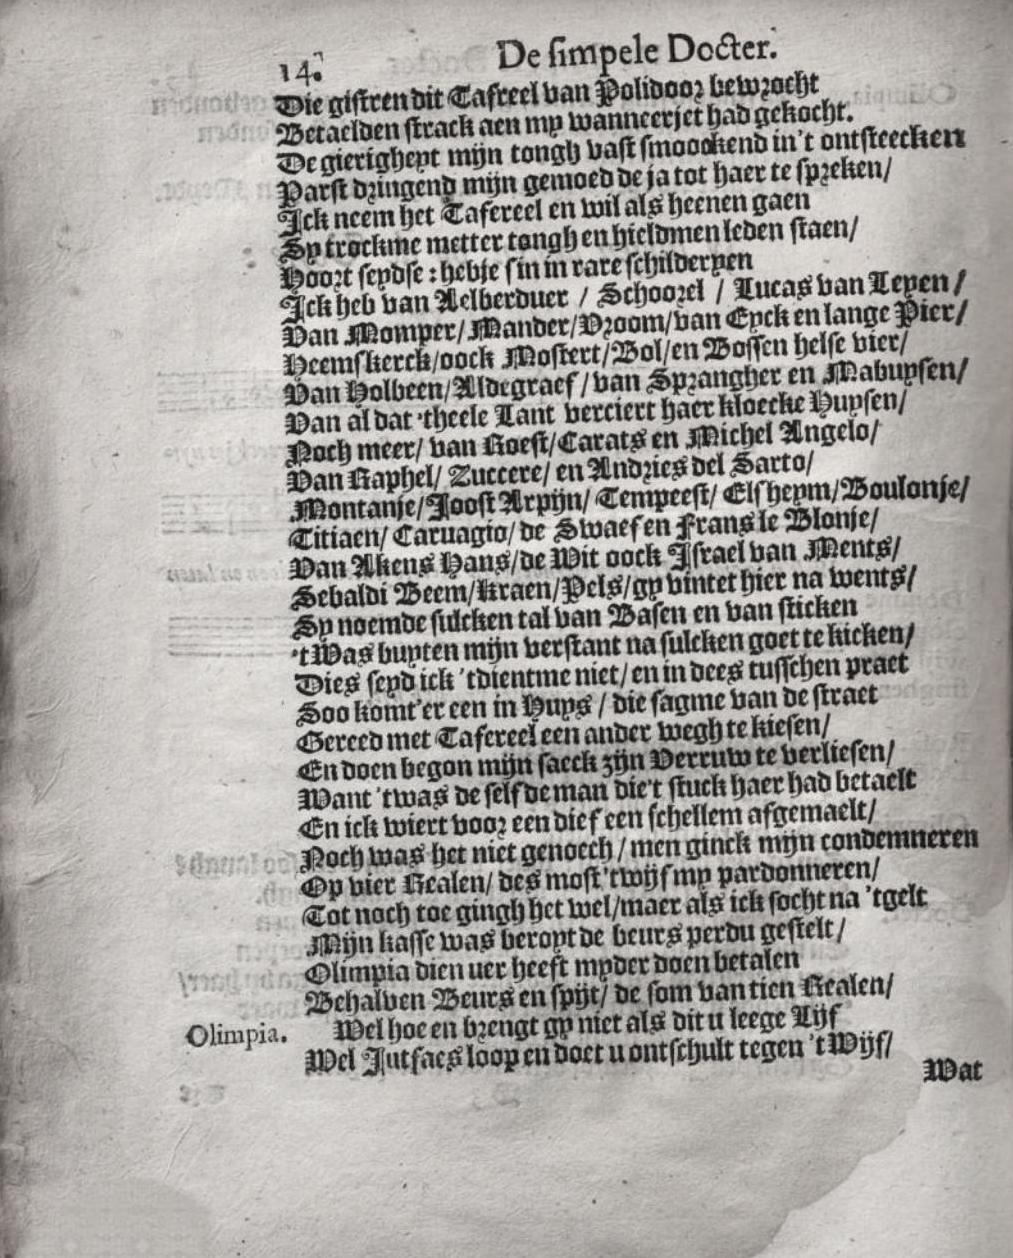 14.
De simpele Docter.
Die gistren dit Tafreel van Polidoor bewrocht
Betaelden strack aen my wanneerjet had gekocht.
De gierigheyt mijn tongh vast smoockend in't ontsteecken
Parst dringend mijn gemoed de ja tot haer te spreken/
Ick neem het Tafereel en wil als heenen gaen
Sy trockme metter tongh en hieldmen leden staen/
Hoort seydse : hebje sin in rare schilderyen
Ick heb van Aelberduer / Schoorel / Lucas van Leyen /
Van Momper/ Mander/ Vroom/ van Eyck en lange Pier/
Heemskerck/ oock Mostert/ Bol/ en Bossen helse vier/
Van Holbeen/ Aldegraef/ van Sprangher en Mabuysen/
Van al dat 'theele Lant verciert haer kloecke Huysen/
Noch meer/ van Roest/ Carats en Michel Angelo/
Van Raphel/ Zuccere/ en Andries del Sarto/
Montanje/ Joost Arpijn/ Tempeest/ Elsheym/ Boulonje/
Titiaen/ Caruagio/ de Swaef en Frans le Blonje/
Van Akens Hans/ de Wit oock Israel van Ments/
Sebaldi Beem/ Kraen/ Pels/ gy vintet hier na wents/
Sy noemde sulcken tal van Basen en van sticken
't Was buyten mijn verstant na sulcken goet te kicken/
Dies seyd ick 'tdientme niet/ en in dees tusschen praet
Soo komt'er een in Huys / die sagme van de straet
Gereed met Tafereel een ander wegh te kiesen/
En doen begon mijn saeck zijn Verruw te verliesen/
Want 'twas de selfde man die't stuck haer had betaelt
En ick wiert voor een dief een schellem afgemaelt/
Noch was het niet genoech / men ginck mijn condemneren
Op vier Realen/ des most 'twijf my pardonneren/
Tot noch toe gingh het wel/ maer als ick socht na 'tgelt
Mijn kasse was beroyt de beurs perdu gestelt/
Olimpia dien uer heeft myder doen betalen
Behalven Beurs en spijt/ de som van tien Realen/
Olimpia. Wel hoe en brengt gy niet als dit u leege Lijf
Wel Jutfaes loop en doet u ontschult tegen 't Wijf/
Wat